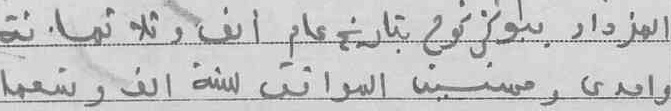 المزداد ببوكركوح بتاريخ عام ألف وثلاثمائة
واحدى وخمسين الموافق لسنة الف وتسعما